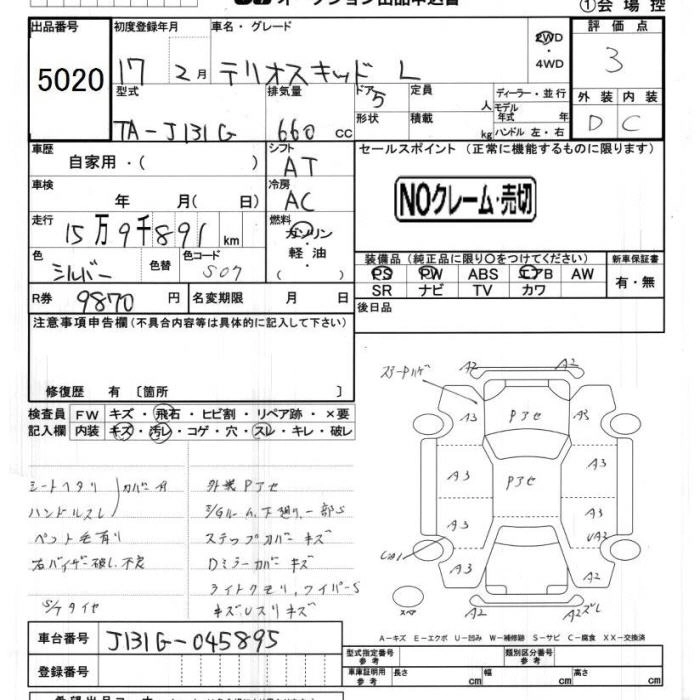 オークション出品申込書
①会場控
出品番号 初度登録年月 車名・グレード 評価点
5020 17 2月 テリオスキッド L 2WD・4WD 3
型式 排気量 ドア 定員 ディーラー・並行 外装 内装
TA-J131G 660cc 5 人 モデル年式 年 D C
形状 積載 kg ハンドル 左・右
車歴 シフト セールスポイント (正常に機能するものに限ります)
自家用・( ) AT
車検 冷房 NOクレーム・売切
年 月( 日) AC
走行 燃料
15万9千891km ガソリン・軽油 ( )
色 色替 色コード 装備品 (純正品に限り○をつけてください) 新車保証書
シルバー S07 PS PW ABS エアB AW 有・無
SR ナビ TV カワ
R券 9870円 名変期限 月 日 後日品
注意事項申告欄(不具合内容等は具体的に記入して下さい)
修復歴 有 〔箇所 〕
検査員 FW キズ・飛石・ヒビ割・リペア跡・×要
記入欄 内装 キズ・汚レ・コゲ・穴・スレ・キレ・破レ
シートヘタリ カバー付 外装Pアセ
ハンドルスレ E/Gルーム、下廻り、一部S
ペット毛有り ステップカバーキズ
右バイザー破レ、不良 Dミラーカバーキズ
ライトクモリ、ワイパーS
S/Tタイヤ キズ、Uスリキズ
A2 A2
A3 Pアセ A3
A3 Pアセ A3
A3 UA2
A3 A2
スペア A2 A2ズレ
A-キズ E-エクボ U-凹み W-補修跡 S-サビ C-腐食 XX-交換済
車台番号 J131G-045895
型式指定番号 参考 類別区分番号 参考
登録番号 車庫証明用 参考 長さ cm 幅 cm 高さ cm
希望出品コーナー